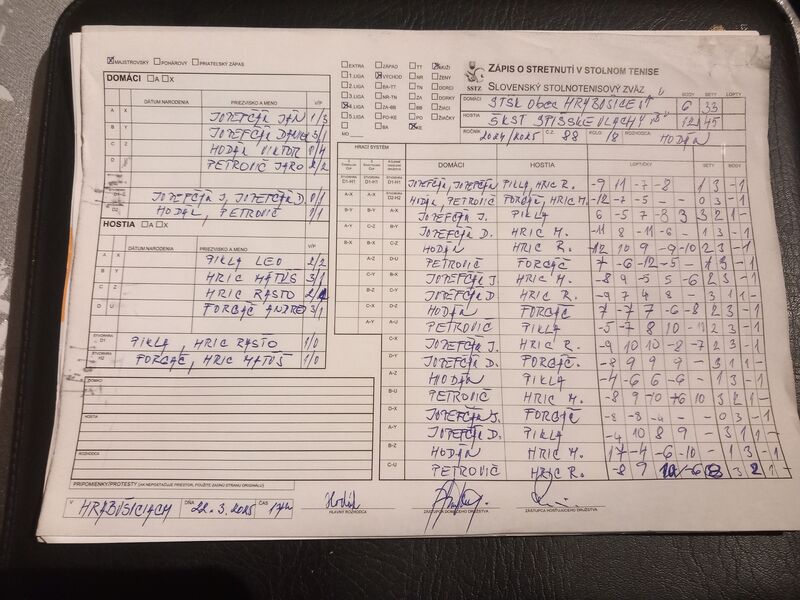 MAJSTROVSKÝ POHÁROVÝ PRIATEĽSKÝ ZÁPAS
DOMÁCI A X
DÁTUM NARODENIA PRIEZVISKO A MENO V/P
A X JOZEFČÁK JÁN 1/3
B Y JOZEFČÁK DANIEL 3/1
C Z HODÁŇ VIKTOR 0/4
D PETROVIČ JARO 2/2
D1 JOZEFČÁK J, JOZEFČÁK D. 0/1
HODÁŇ, PETROVIČ 0/1
HOSTIA A X
DÁTUM NARODENIA PRIEZVISKO A MENO V/P
A X PIKLA LEO 2/2
B Y HRIC MATÚŠ 3/1
C Z HRIC RASTO
D U FORGÁČ ANDREJ 3/1
ŠTVORHRA D1 PIKLA, HRIC RASTO 1/0
ŠTVORHRA H2 FORGÁČ, HRIC MATÚŠ 1/0
DOMÁCI
HOSTIA
ROZHODCA
PRIPOMIENKY/PROTESTY (AK NEPOSTAČUJE PRIESTOR, POUŽITE ZADNÚ STRANU ORIGINÁLU)
V HRABUŠICIACH DŇA 22.3.2025 ČAS
HLAVNÝ ROZHODCA
ZÁSTUPCA DOMÁCEHO DRUŽSTVA
ZÁSTUPCA HOSŤUJÚCEHO DRUŽSTVA
EXTRA ZÁPAD TT MUŽI
1. LIGA VÝCHOD NR ŽENY
2. LIGA BA-TT TN DORCI
3. LIGA NR-TN ZA DORKY
4. LIGA ZA-BB BB ŽIACI
5. LIGA PO-KE PO ŽIAČKY
MO BA KE
SSTZ
ZÁPIS O STRETNUTÍ V STOLNOM TENISE
SLOVENSKÝ STOLNOTENISOVÝ ZVÄZ
BODY SETY LOPTY
DOMÁCI STSK OBEC HRABUŠICE 6 33
HOSTIA ŠKST SPIŠSKÉ VLACHY "B" 12 45
ROČNÍK 2024/2025 Č.Z. 88 KOLO 18 ROZHODCA HODÁŇ
HRACÍ SYSTÉM
DOMÁCI HOSTIA LOPTIČKY SETY BODY
D1-H1 JOZEFČÁK, JOZEFČÁK PIKLA, HRIC R. -9 11 -7 -8 1 3 -1
D2-H2 HODÁŇ, PETROVIČ FORGÁČ, HRIC M. -12 -7 -5 - - 0 3 -1
A-X JOZEFČÁK J. PIKLA 6 -5 7 -8 3 3 2 1 -
B-Y JOZEFČÁK D. HRIC M. -11 8 -11 -6 - 1 3 -1
C-Z HODÁŇ HRIC R. -12 10 9 -9 -10 2 3 -1
D-U PETROVIČ FORGÁČ 7 -6 -12 -5 - 1 3 -1
B-X JOZEFČÁK J. HRIC M. -8 9 5 5 -6 2 3 -1
JOZEFČÁK D HRIC R. -9 7 4 8 - 3 1 1 -
HODÁŇ FORGÁČ 7 -7 7 -6 -8 2 3 -1
A-U PETROVIČ PIKLA -5 -7 8 10
C-X JOZEFČÁK J. HRIC R. -9 10 10 -8 -7 2 3 -1
D-Y JOZEFČÁK D. FORGÁČ. -8 9 9 9 - 3 1 1 -
A-Z HODÁŇ PIKLA -4 -6 6 -9 - 1 3 -1
B-U PETROVIČ HRIC M. -8 9 10 3 2 1 -
D-X JOZEFČÁK J. FORGÁČ -8 -8 -4 - - 0 3 -1
A-Y JOZEFČÁK D. PIKLA -4 10 8 9 - 3 1 1 -
B-Z HODÁŇ HRIC M. 17 -4 -6 -10 - 1 3 -1
C-U PETROVIČ HRIC R. -8 9 3 2 1 -